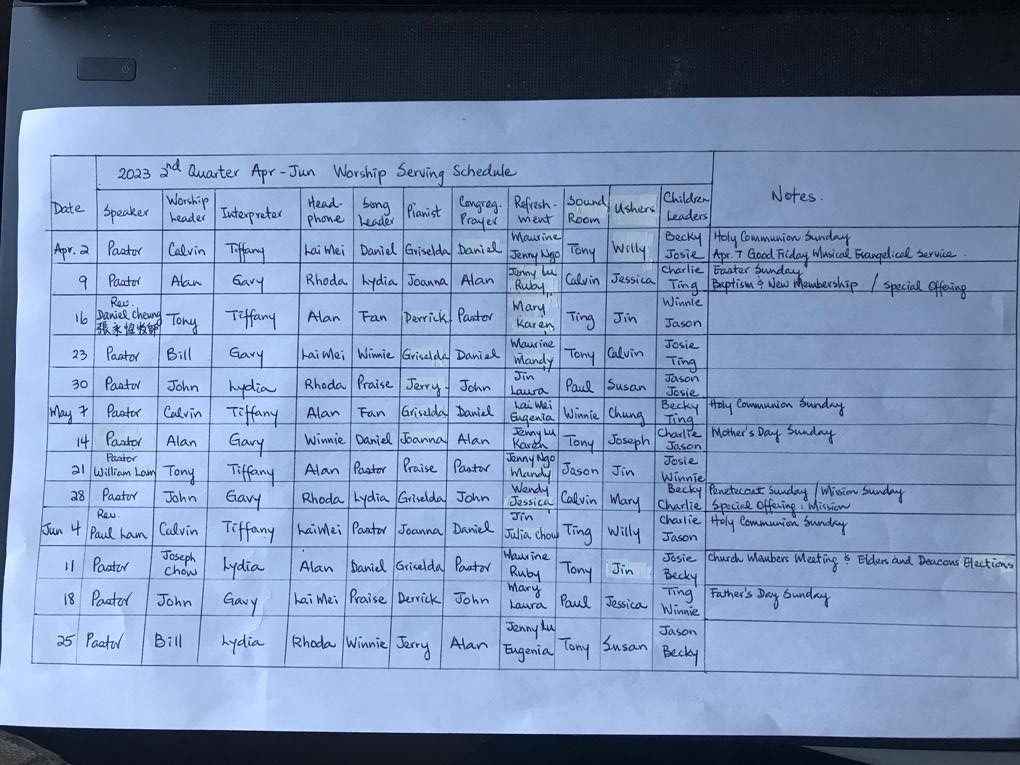 2023 2nd Quarter Apr - Jun Worship Serving Schedule
Date Speaker Worship Leader Interpreter Head-phone Song Leader Pianist Congreg. Prayer Refresh-ment Sound Room Ushers Children Leaders Notes.
Apr. 2 Pastor Calvin Tiffany Lai Mei Daniel Griselda Daniel Maurine Jenny Ngo Tony Willy Becky Josie Holy Communion Sunday
Apr. 7 Good Friday Musical Evangelical Service.
9 Pastor Alan Gavy Rhoda Lydia Joanna Alan Jenny Lu Ruby Calvin Jessica Charlie Ting Easter Sunday
Baptism & New Membership / Special Offering
16 Rev. Daniel Cheung 張永恆牧師 Tony Tiffany Alan Fan Derrick Pastor Mary Karen Ting Jin Winnie Jason
23 Pastor Bill Gavy Lai Mei Winnie Griselda Daniel Maurine Mandy Tony Calvin Josie Ting
30 Pastor John Lydia Rhoda Praise Jerry John Jin Laura Paul Susan Jason Josie
May 7 Pastor Calvin Tiffany Alan Fan Griselda Daniel Lai Mei Eugenia Winnie Chung Becky Ting Holy Communion Sunday
14 Pastor Alan Gavy Winnie Daniel Joanna Alan Jenny Lu Karen Tony Joseph Charlie Jason Mother's Day Sunday
21 Pastor William Lam Tony Tiffany Alan Pastor Praise Pastor Jenny Ngo Mandy Jason Jin Josie Winnie
28 Pastor John Gavy Rhoda Lydia Griselda John Wendy Jessica Calvin Mary Becky Charlie Penetecost Sunday / Mission Sunday
Special Offering : Mission
Jun 4 Rev. Paul Lam Calvin Tiffany Lai Mei Pastor Joanna Daniel Jin Julia Chow Ting Willy Charlie Jason Holy Communion Sunday
11 Pastor Joseph Chow Lydia Alan Daniel Griselda Pastor Maurine Ruby Tony Jin Josie Becky Church Members Meeting & Elders and Deacons Elections
18 Pastor John Gavy Lai Mei Praise Derrick John Mary Laura Paul Jessica Ting Winnie Father's Day Sunday
25 Pastor Bill Lydia Rhoda Winnie Jerry Alan Jenny Lu Eugenia Tony Susan Jason Becky